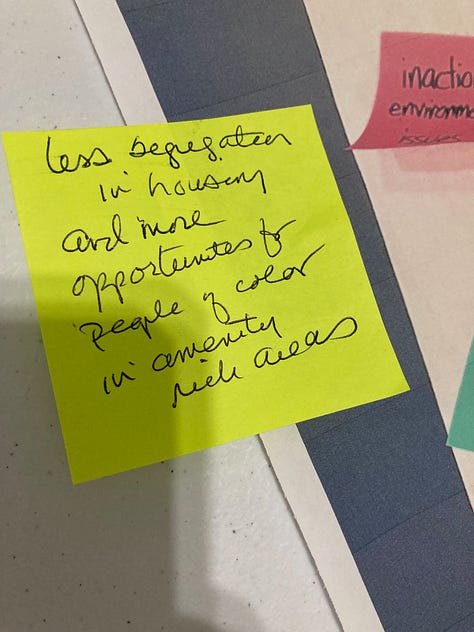 less segregation
in housing
and more
opportunities for
people of color
in amenity
rich areas
inactio
environme
issues